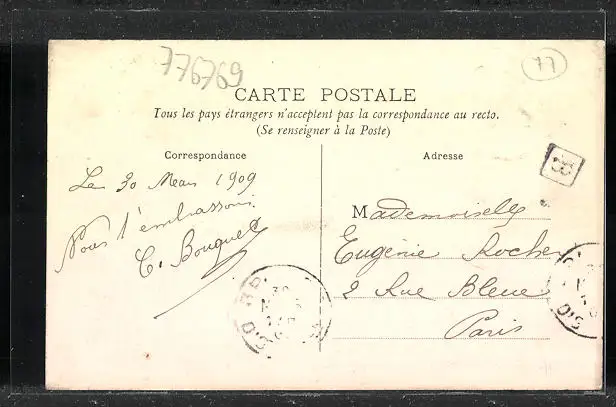 776769
77
CARTE POSTALE
Tous les pays étrangers n'acceptent pas la correspondance au recto.
(Se renseigner à la Poste)
Correspondance
Le 30 Mars 1909
Nous t'embrassons
C. Bouquet
Adresse
Mademoiselle
Eugénie Rocher
2 Rue Bleue
Paris